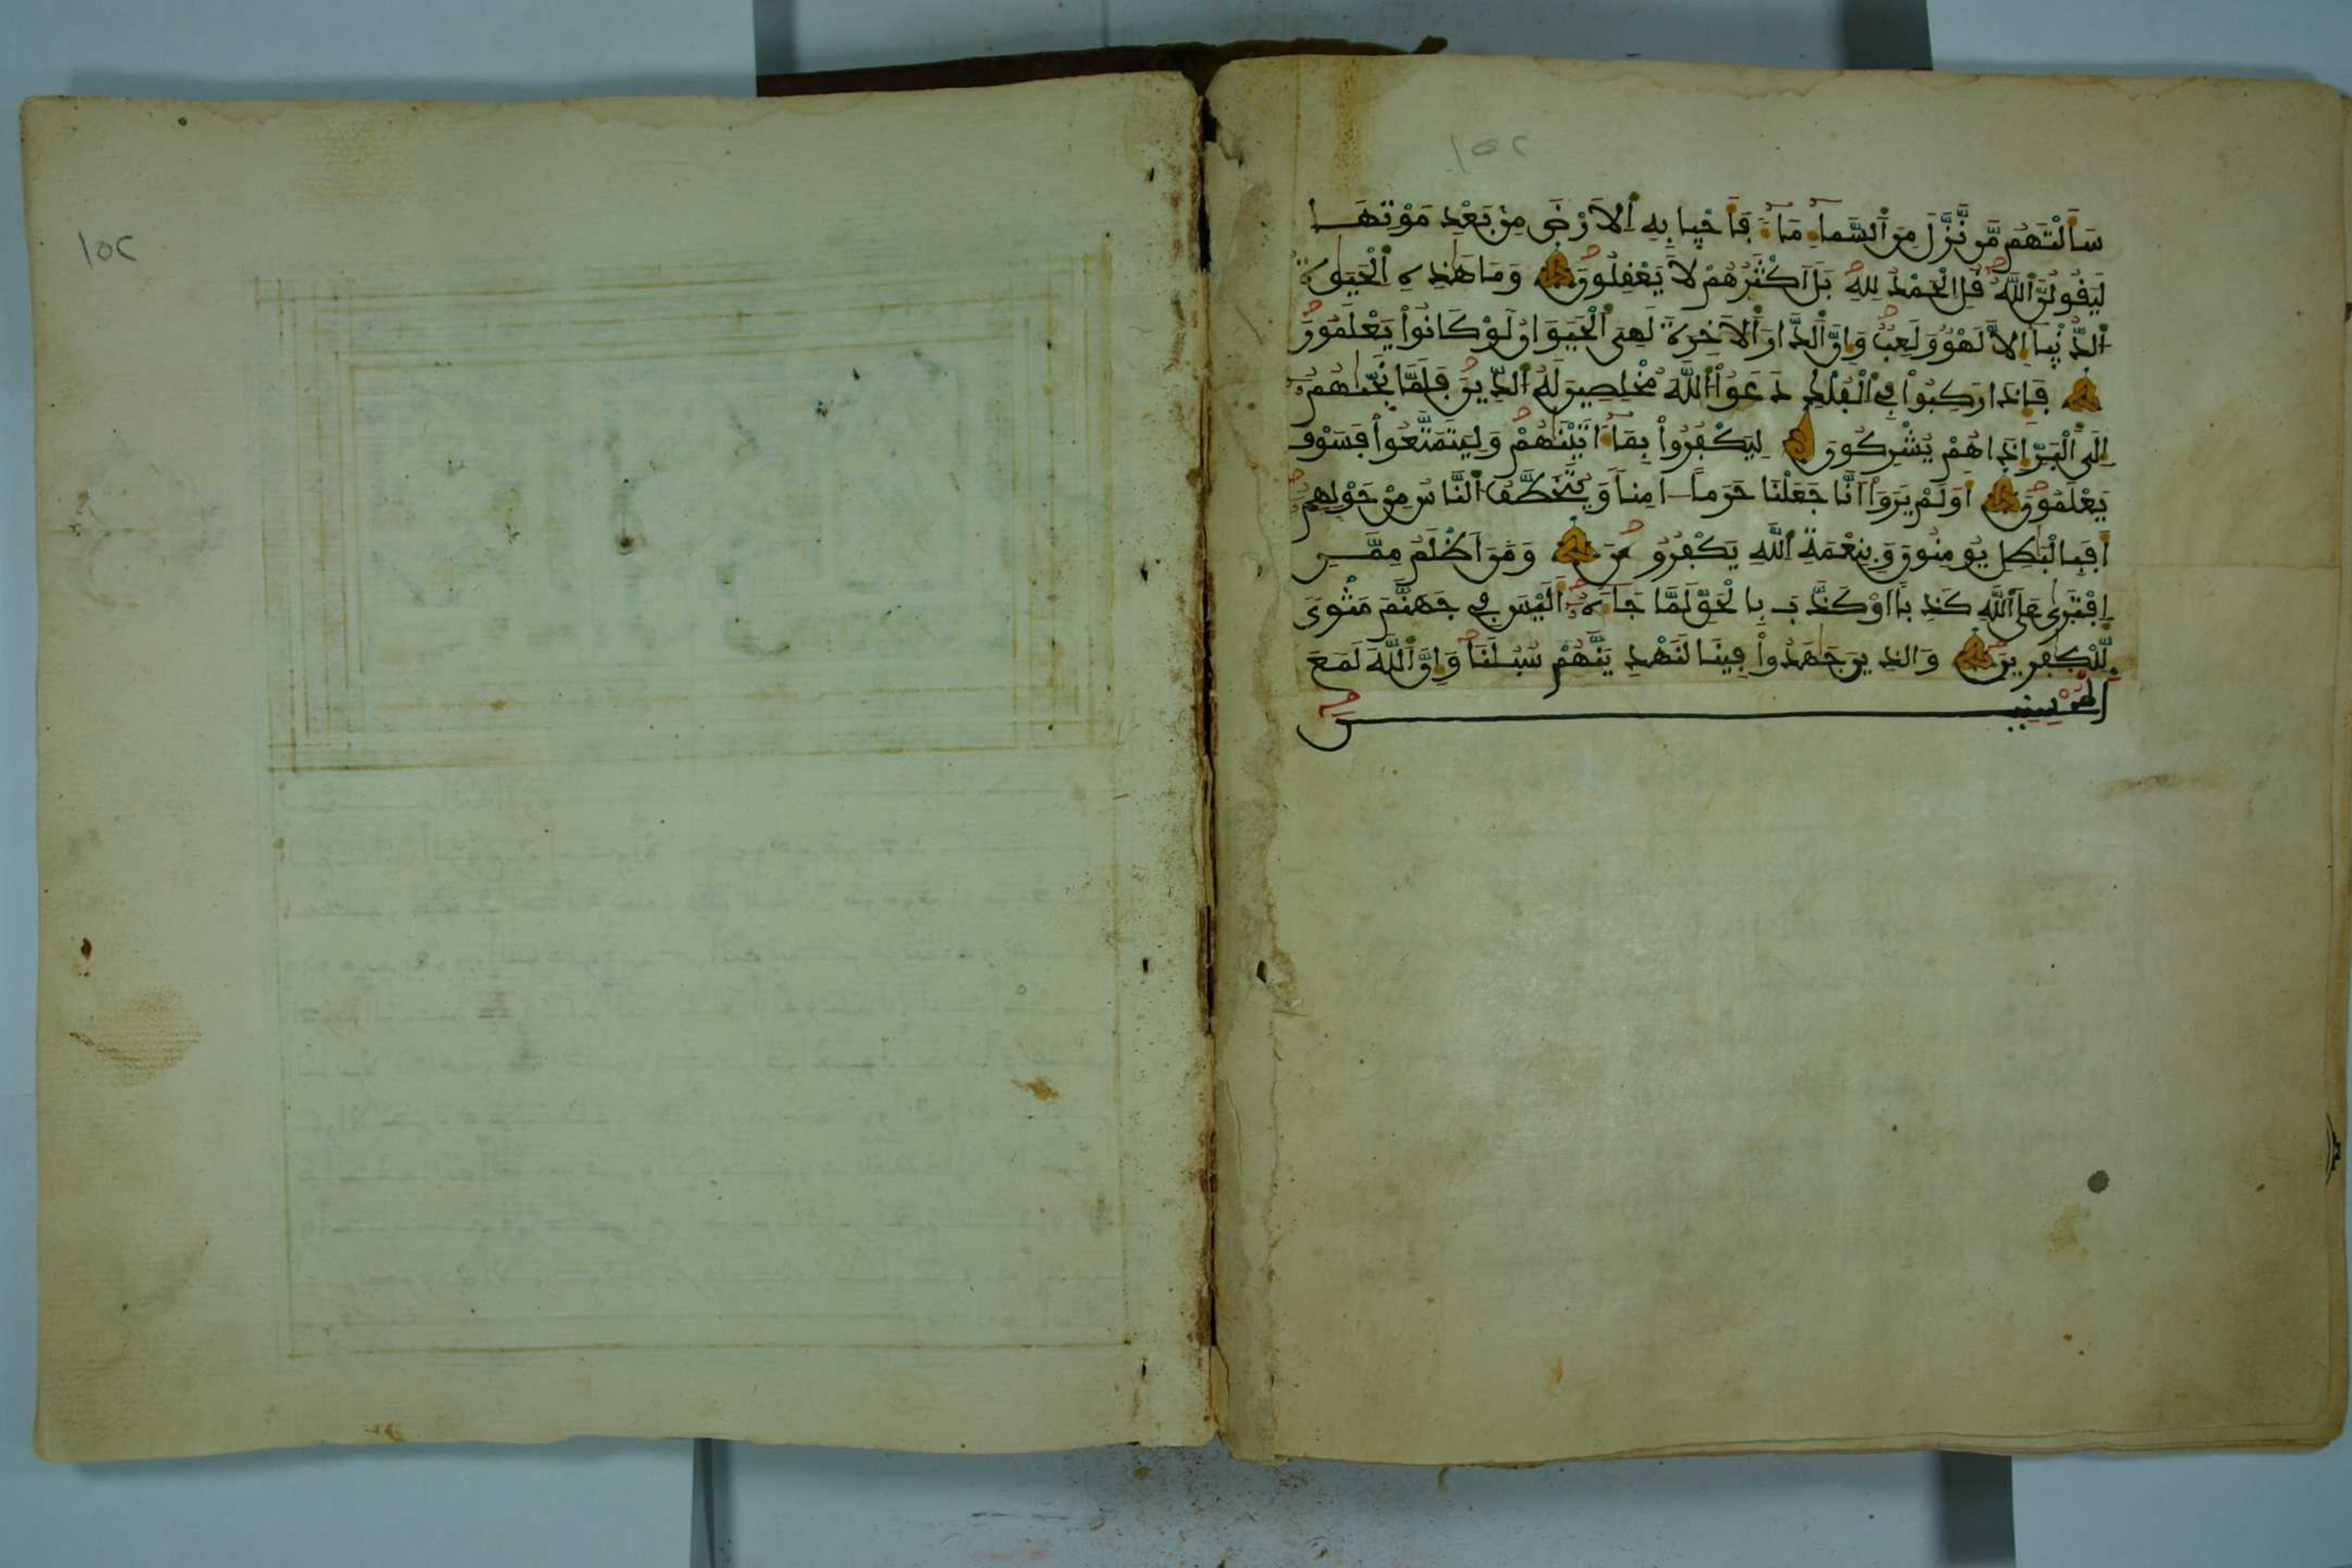 ١٥٢
سَأَلْتَهُم مَّن نَّزَّلَ مِنَ ٱلسَّمَآءِ مَآءً فَأَحْيَا بِهِ ٱلَارْضَ مِنۢ بَعْدِ مَوْتِهَا
لَيَقُولُنَّ ٱللَّهُ قُلِ ٱلْحَمْدُ لِلهِ بَلَ اَكْثَرُهُمْ لَا يَعْقِلُونَ وَمَا هَٰذِهِ ٱلْحَيَوٰةُ
ٱلدُّنْيَا إِلَّا لَهْوٌ وَلَعِبٌ وَإِنَّ ٱلدَّارَ ٱلَاخِرَةَ لَهِىَ ٱلْحَيَوَانُ لَوْ كَانُوا۟ يَعْلَمُونَ
فَإِذَا رَكِبُوا۟ فِى ٱلْفُلْكِ دَعَوُا۟ ٱللَّهَ مُخْلِصِينَ لَهُ ٱلدِّينَ فَلَمَّا نَجَّىٰهُمُۥٓ
إِلَى ٱلْبَرِّ إِذَا هُمْ يُشْرِكُونَ لِيَكْفُرُوا۟ بِمَآ ءَاتَيْنَٰهُمْ وَلِيَتَمَتَّعُوا۟ فَسَوْفَ
يَعْلَمُونَ أَوَلَمْ يَرَوَا۟ اَنَّا جَعَلْنَا حَرَماً اٰمِناً وَيُتَخَطَّفُ ٱلنَّاسُ مِنْ حَوْلِهِمُۥٓ
أَفَبِالْبَٰطِلِ يُومِنُونَ وَبِنِعْمَةِ ٱللَّهِ يَكْفُرُونَ وَمَنَ اَظْلَمُ مِمَّنِ
اِفْتَرَىٰ عَلَى ٱللَّهِ كَذِباً اَوْ كَذَّبَ بِالْحَقِّ لَمَّا جَآءَهُۥٓ أَلَيْسَ فِى جَهَنَّمَ مَثْوىً
لِّلْكٰفِرِينَ وَالذِينَ جَٰهَدُوا۟ فِينَا لَنَهْدِيَنَّهُمْ سُبُلَنَا وَإِنَّ ٱللَّهَ لَمَعَ
ٱلْمُحْسِنِينَ
١٥٢